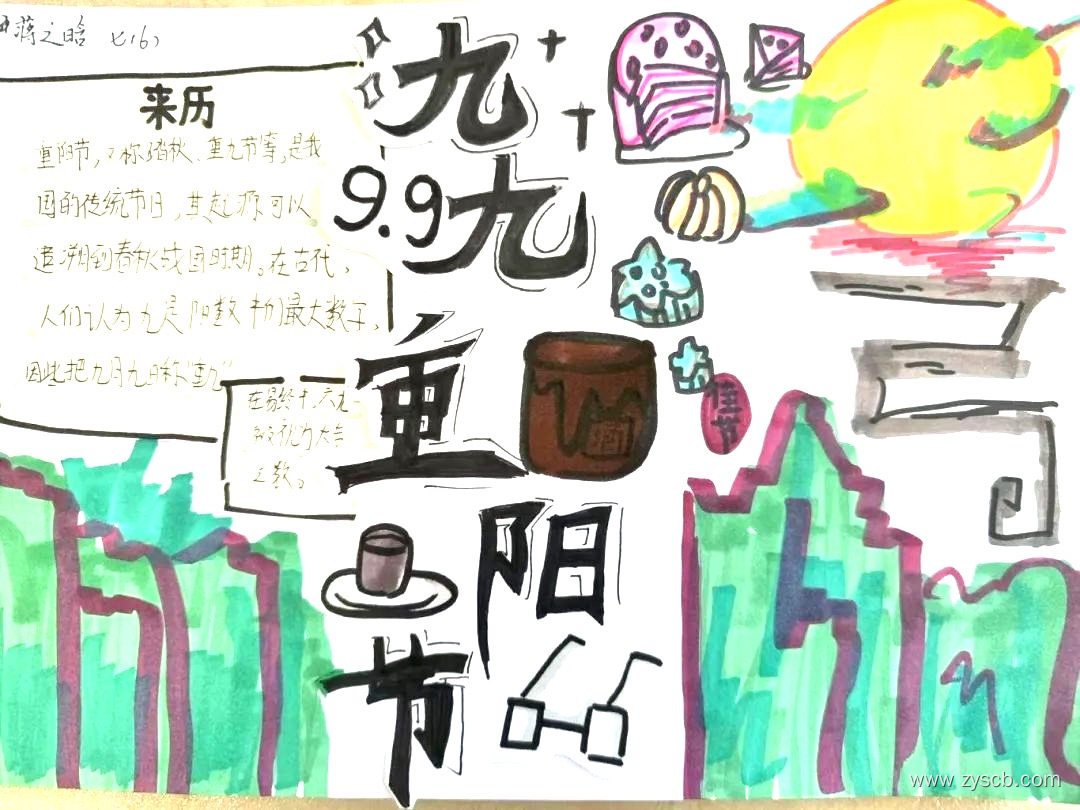 蒋之晗 七(6)
来历
重阳节,又称踏秋、重九节等,是我
国的传统节日,其起源可以
追溯到春秋战国时期。在古代,
人们认为九是阳数中的最大数字,
因此把九月九日称"重九"
在易经中,六九
被视为大吉
之数。
九
9.9九
重
阳
节
酒
佳节
www.zyscb.com